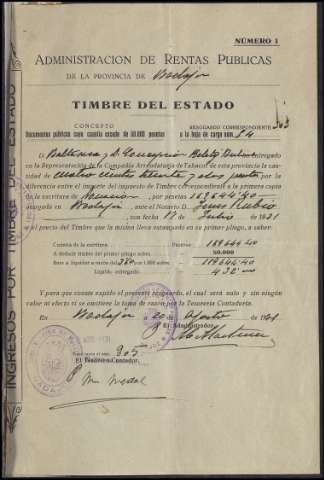 NÚMERO 1
ADMINISTRACION DE RENTAS PUBLICAS
DE LA PROVINCIA DE Badajoz
TIMBRE DEL ESTADO
CONCEPTO
RESGUARDO CORRESPONDIENTE
Documentos públicos cuya cuantía excede de 50.000 pesetas
a la hoja de cargo núm. 14
D. Baltasar y Dª Concepción entregado
en la Representación de la Compañía Arrendataria de Tabacos de esta provincia la cantidad
de cuatrocientas treinta y dos pesetas por la
diferencia entre el importe del impuesto de Timbre correspondiente a la primera copia
de la escritura de por pesetas 169.644'40
otorgada en Badajoz, ante el Notario D. Jesús Rubio
con fecha 17 de Julio de 1931
y el precio del Timbre que la misma lleva estampado en su primer pliego, a saber:
Cuantía de la escritura Pesetas 169.644'40
A deducir timbre del primer pliego sobre 50.000
Base a liquidar a razón del por 1.000 sobre 119.644'40
Líquido entregado 432
Y para que conste expido el presente resguardo, el cual será nulo y sin ningún
valor ni efecto si se omitiese la toma de razón por la Tesorería Contaduría.
En Badajoz 20 de Agosto de 1931
El Administrador,
Tomé razón al núm. 905
El Tesorero-Contador,
INGRESOS POR TIMBRE DEL ESTADO